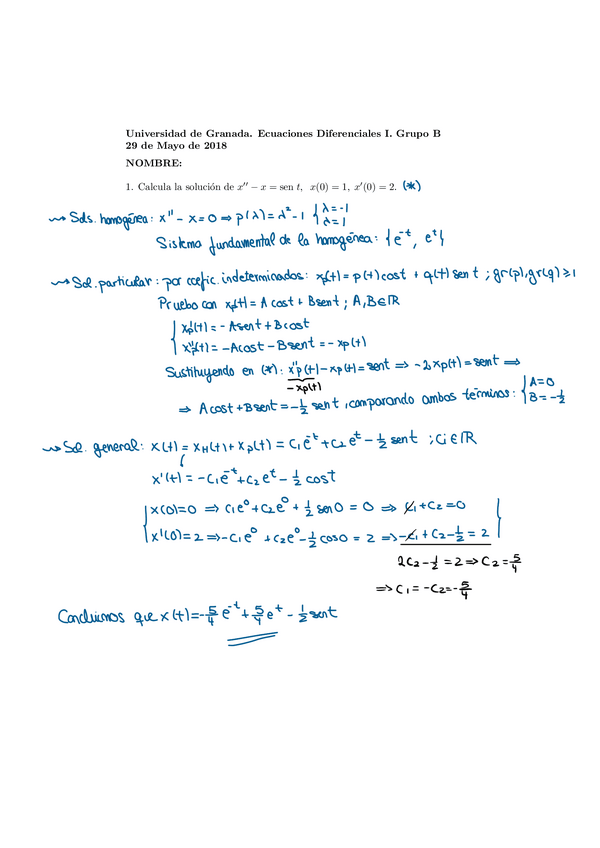 Universidad de Granada. Ecuaciones Diferenciales I. Grupo B
29 de Mayo de 2018
NOMBRE:
1. Calcula la solución de x'' − x = sen t, x(0) = 1, x'(0) = 2. (*)
⇝ Sols. homogénea: x'' - x = 0 ⇒ p(λ) = λ² - 1 { λ = -1
λ = 1
Sistema fundamental de la homogénea: {e^-t, e^t}
⇝ Sol. particular: por coefic. indeterminados: xp(t) = p(t) cost + q(t) sent ; gr(p), gr(q) ≥ 1
Pruebo con xp(t) = A cost + B sent ; A, B ∈ ℝ
{ x'p(t) = -A sent + B cost
x''p(t) = -A cost - B sent = -xp(t)
Sustituyendo en (*): x''p(t) - xp(t) = sent ⇒ -2xp(t) = sent ⇒
-xp(t)
⇒ A cost + B sent = -1/2 sent, comparando ambos términos: { A = 0
B = -1/2
⇝ Sol. general: x(t) = xH(t) + xp(t) = C1 e^-t + C2 e^t - 1/2 sent ; Ci ∈ ℝ
x'(t) = -C1 e^-t + C2 e^t - 1/2 cost
x(0) = 0 ⇒ C1 e^0 + C2 e^0 + 1/2 sen 0 = 0 ⇒ C1 + C2 = 0
x'(0) = 2 ⇒ -C1 e^0 + C2 e^0 - 1/2 cos 0 = 2 ⇒ -C1 + C2 - 1/2 = 2
2C2 - 1/2 = 2 ⇒ C2 = 5/4
⇒ C1 = -C2 = -5/4
Concluimos que x(t) = -5/4 e^-t + 5/4 e^t - 1/2 sent